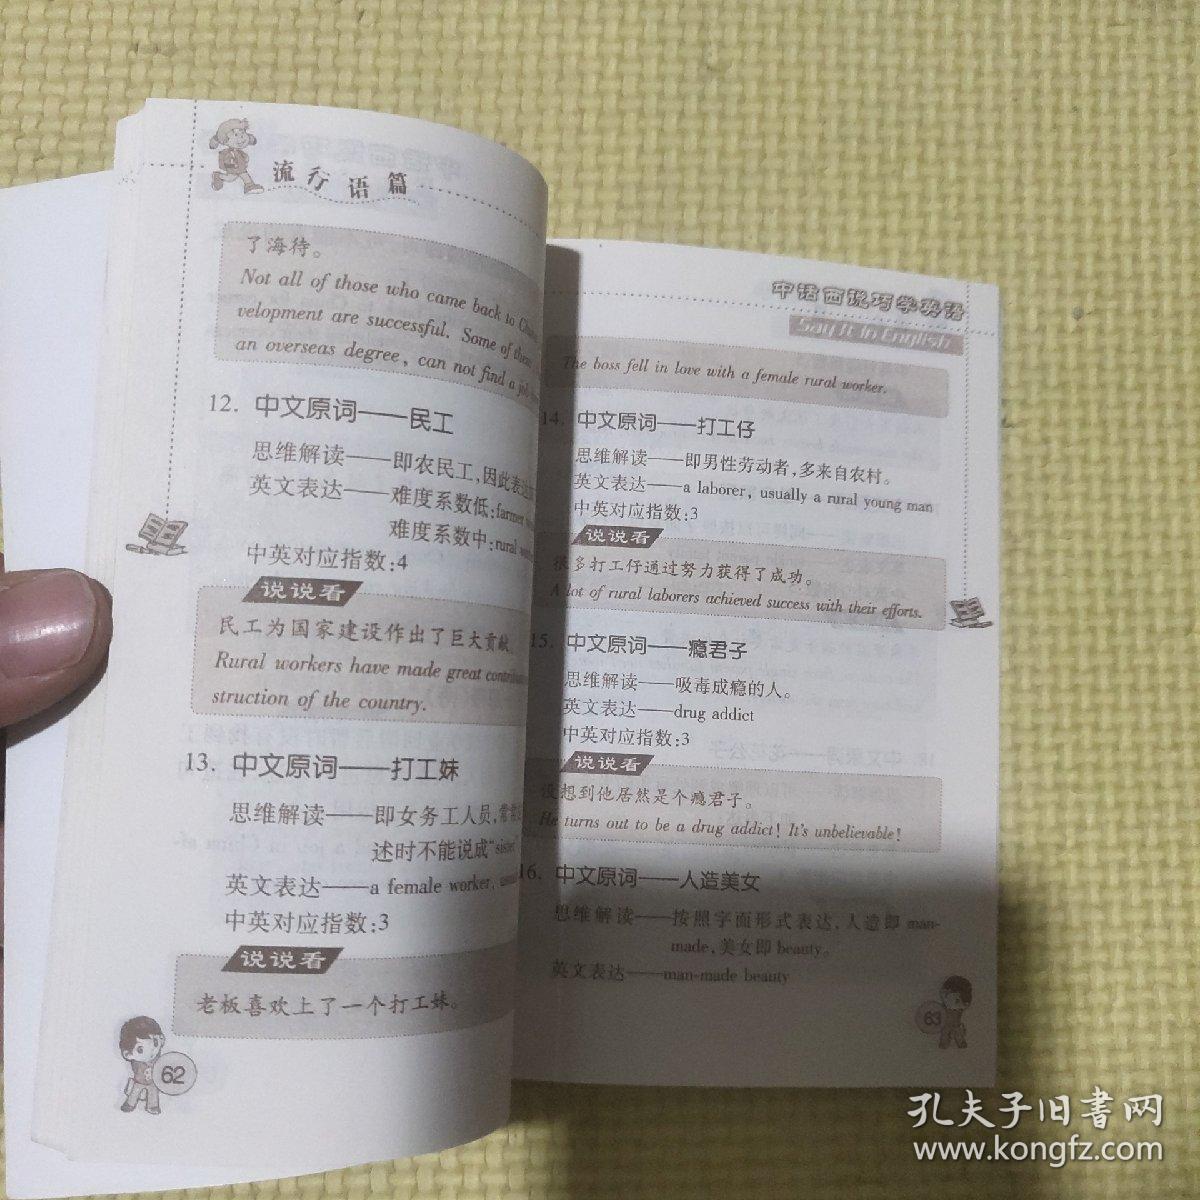 流行语篇
了海待。
Not all of those who came back to
velopment are successful. Some of them
an overseas degree, can not find a job
12. 中文原词——民工
思维解读——即农民工,因此表达
英文表达——难度系数低:farmer
难度系数中:rural
中英对应指数:4
说说看
民工为国家建设作出了巨大贡献。
Rural workers have made great
struction of the country.
13. 中文原词——打工妹
思维解读——即女务工人员,常常
述时不能说成"sister"
英文表达——a female worker,
中英对应指数:3
说说看
老板喜欢上了一个打工妹。
62
中语西说巧学英语
Say It In English
The boss fell in love with a female rural worker.
14. 中文原词——打工仔
思维解读——即男性劳动者,多来自农村。
英文表达——a laborer, usually a rural young man
中英对应指数:3
说说看
很多打工仔通过努力获得了成功。
A lot of rural laborers achieved success with their efforts.
15. 中文原词——瘾君子
思维解读——吸毒成瘾的人。
英文表达——drug addict
中英对应指数:3
说说看
没想到他居然是个瘾君子。
He turns out to be a drug addict! It's unbelievable!
16. 中文原词——人造美女
思维解读——按照字面形式表达,人造即 man-
made,美女即 beauty。
英文表达——man-made beauty
63
孔夫子旧书网
www.kongfz.com